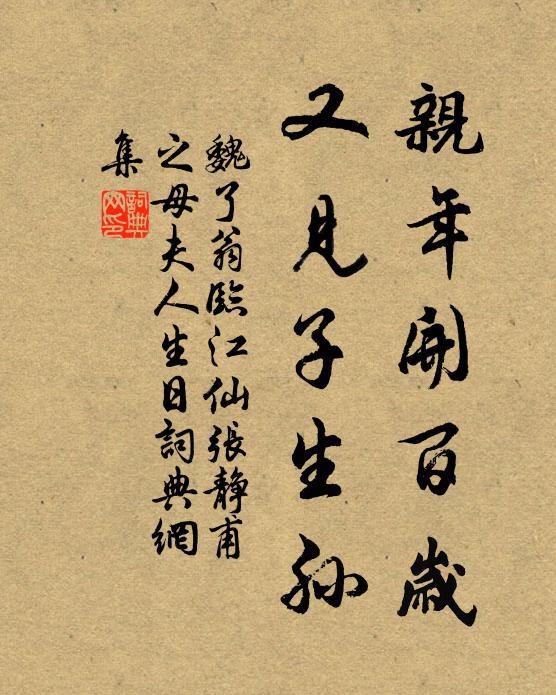 親年開百歲
又見子生孫
魏了翁臨江仙張静甫
之母夫人生日詞典網
集
詞典
网印